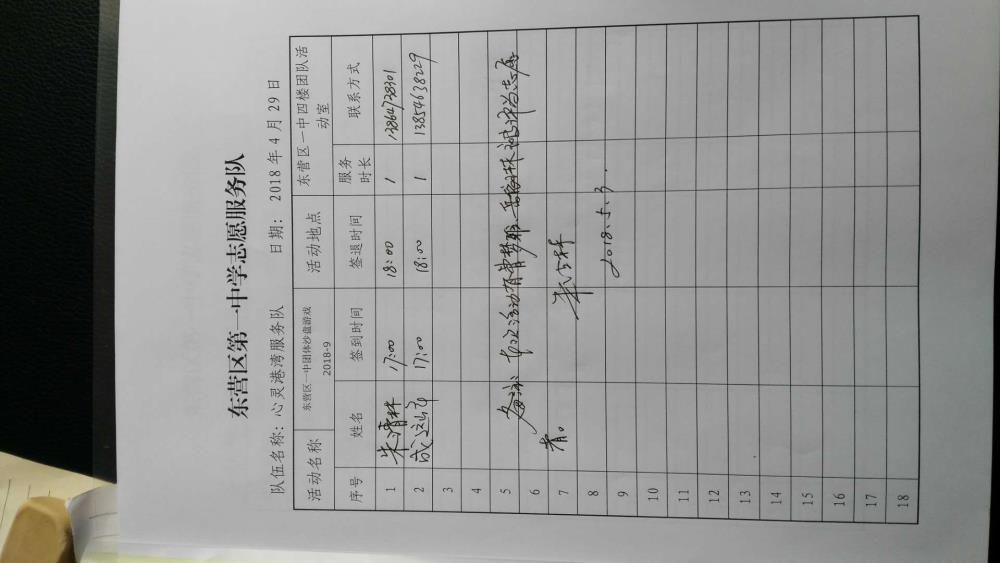 东营区第一中学志愿服务队
队伍名称：心灵港湾服务队 日期： 2018 年 4 月 29 日
活动名称 东营区一中团体沙盘游戏 2018-9 活动地点 东营区一中四楼团队活动室
序号 姓名 签到时间 签退时间 服务时长 联系方式
1 朱清林 17:00 18:00 1 13864738301
2 17:00 18:00 1 13854638229
3
4
5
6
7
8
9
10
11
12
13
14
15
16
17
18
备注：本次活动有曹梦娜、
者。
2018.5.3.